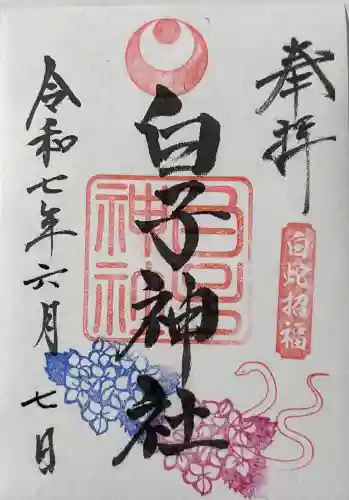 奉拝
白蛇招福
白子神社
白子神社
令和七年六月七日